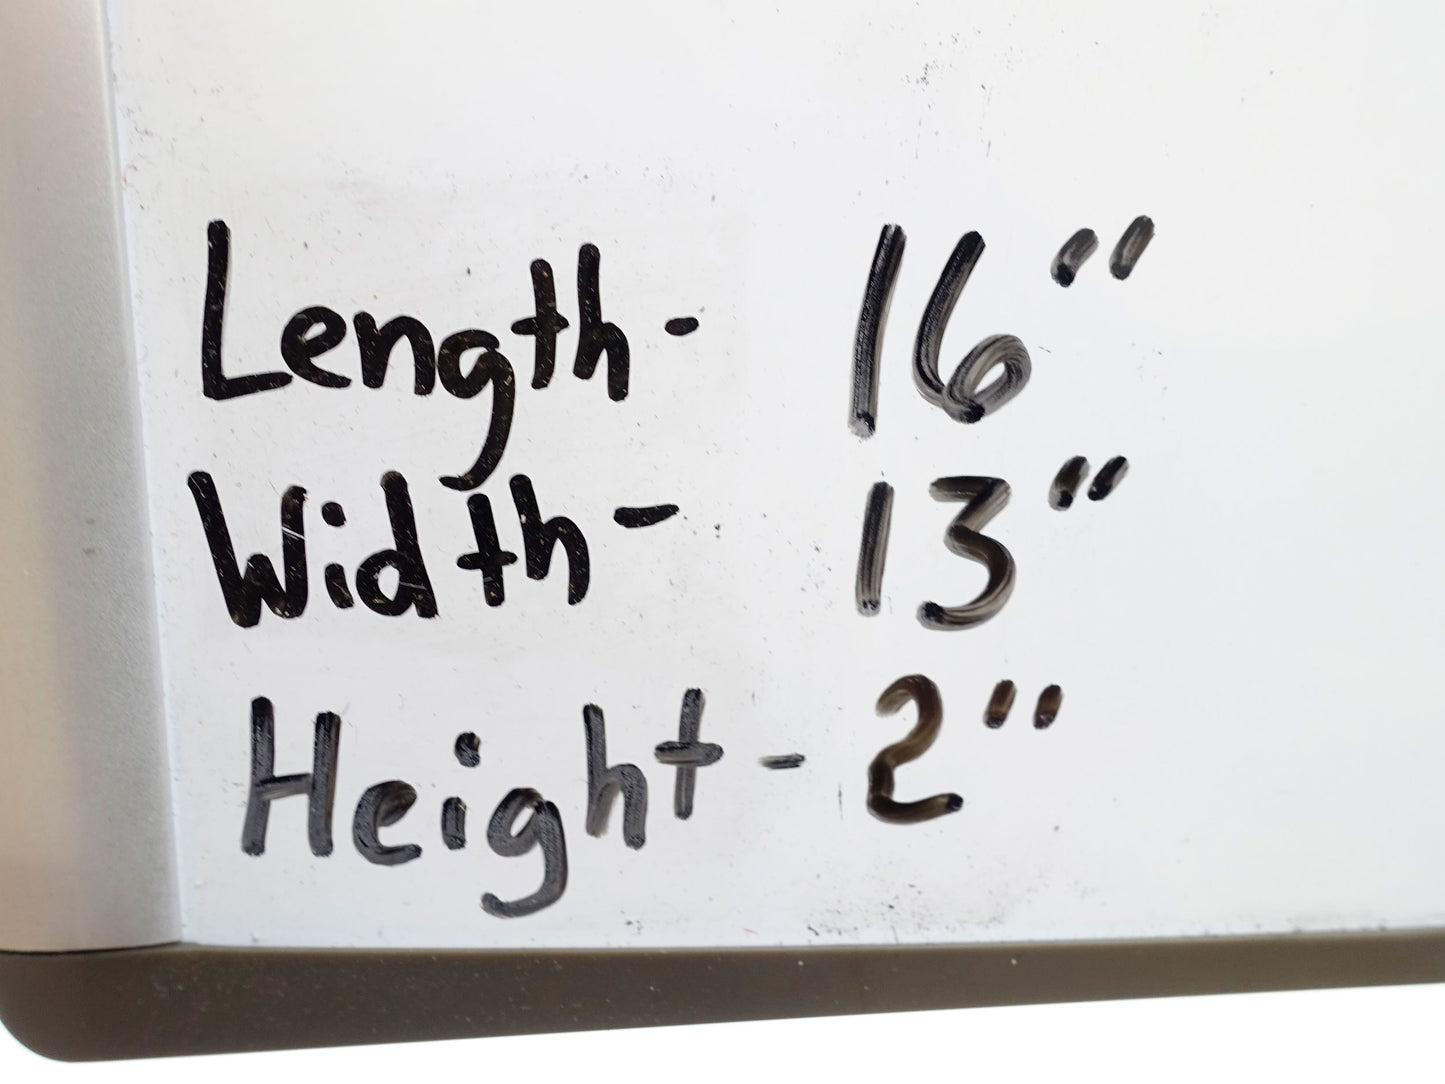 Length- 16"
Width- 13"
Height- 2"